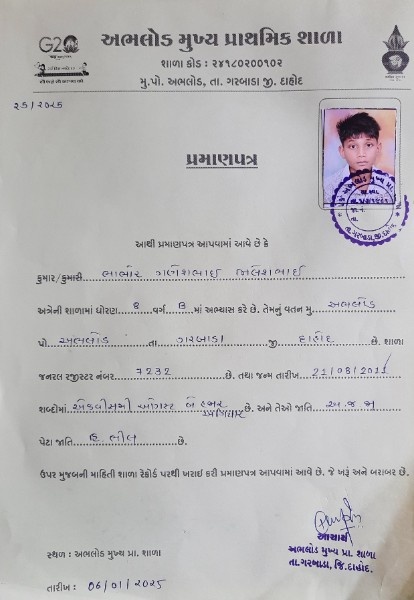 G20
અભલોડ મુખ્ય પ્રાથમિક શાળા
શાળા કોડ : ૨૪૧૮૦૨૦૦૧૦૨
મુ.પો. અભલોડ, તા. ગરબાડા જી. દાહોદ
પ્રમાણપત્ર
આથી પ્રમાણપત્ર આપવામાં આવે છે કે
કુમાર/કુમારી ભાભોર ગણેશભાઈ
અત્રેની શાળામાં ધોરણ ૬ વર્ગ B માં અભ્યાસ કરે છે. તેમનું વતન મુ. અભલોડ
પો. અભલોડ તા. ગરબાડા જી. દાહોદ છે. શાળા
જનરલ રજીસ્ટર નંબર 7232 છે. તથા જન્મ તારીખ 21/08/2011
શબ્દોમાં એકવીસમી ઓગસ્ટ બે હજાર અગિયાર છે. અને તેઓ જાતિ અ.જ.જા
પેટા જાતિ હિ. ભીલ છે.
ઉપર મુજબની માહિતી શાળા રેકોર્ડ પરથી ખરાઈ કરી પ્રમાણપત્ર આપવામાં આવે છે. જે ખરૂં અને બરાબર છે.
આચાર્ય
સ્થળ : અભલોડ મુખ્ય પ્રા. શાળા
અભલોડ મુખ્ય પ્રા. શાળા
તા.ગરબાડા, જિ.દાહોદ.
તારીખ : 06/01/2025